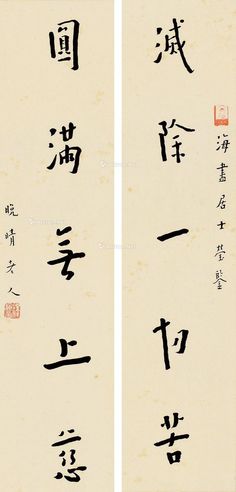 海書居士莹鑒
滅除一切苦
圓滿無上慈
晚晴老人